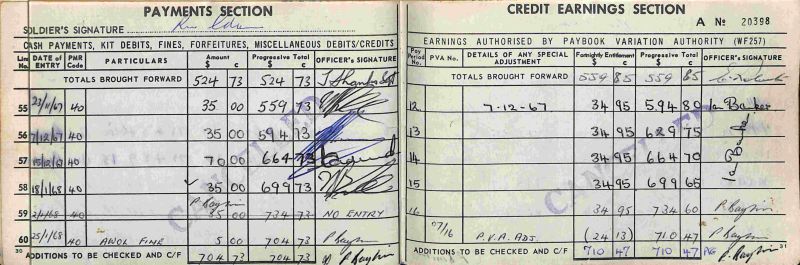 PAYMENTS SECTION
SOLDIER'S SIGNATURE
CASH PAYMENTS, KIT DEBITS, FINES, FORFEITURES, MISCELLANEOUS DEBITS/CREDITS
Line No. DATE of ENTRY PMR Code PARTICULARS Amount $ c Progressive Total $ c OFFICER'S SIGNATURE
TOTALS BROUGHT FORWARD 524 73 524 73
55 23/11/67 40 35 00 559 73
56 7/12/67 40 35 00 594 73
57 15/12/67 40 70 00 664 73
58 18/1/68 40 35 00 699 73
59 40 35 00 734 73 NO ENTRY
60 25/1/68 40 AWOL FINE 5 00 704 73
30 ADDITIONS TO BE CHECKED AND C/F 704 73 704 73
CANCELLED
CREDIT EARNINGS SECTION
A No 20398
EARNINGS AUTHORISED BY PAYBOOK VARIATION AUTHORITY (WF257)
Pay Period No. PVA No. DETAILS OF ANY SPECIAL ADJUSTMENT Fortnightly Entitlement $ c Progressive Total $ c OFFICER'S SIGNATURE
TOTALS BROUGHT FORWARD 559 85 559 85
12. 7-12-67 34 95 594 80 Ian Barker
13 34 95 629 75
14 34 95 664 70
15 34 95 699 65
16 34 95 734 60
07/16 P.V.A. ADJ. (24 13) 710 47
ADDITIONS TO BE CHECKED AND C/F 710 47 710 47 31
CANCELLED